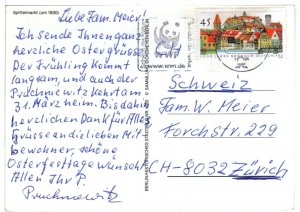 Spittelmarkt (um 1930)
Liebe Fam. Meier!
Ich sende Ihnen ganz
herzliche Ostergrüsse.
Der Frühling kommt
langsam, und auch der
kehrt am
31. März heim. Bis dahin
herzlichen Dank für Alles
Grüsse an die lieben Mit-
bewohner, schöne
Osterfesttage wünscht
Allen Ihr P.
45
Schweiz
Fam. W. Meier
Forchstr. 229
CH-8032 Zürich